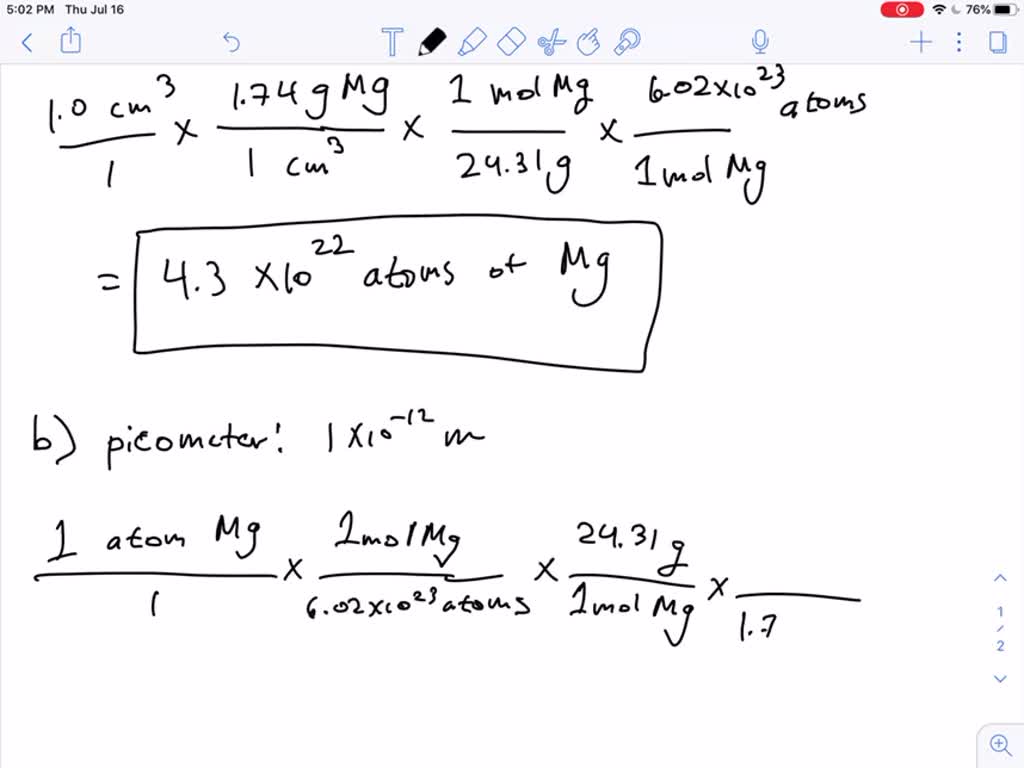 5:02 PM Thu Jul 16 76%
1.0 cm³ / 1 × 1.74 g Mg / 1 cm³ × 1 mol Mg / 24.31 g × 6.02×10²³ atoms / 1 mol Mg
= 4.3 ×10²² atoms of Mg
b) picometer: 1×10⁻¹² m
1 atom Mg / 1 × 1 mol Mg / 6.02×10²³ atoms × 24.31 g / 1 mol Mg × / 1.7
1 / 2